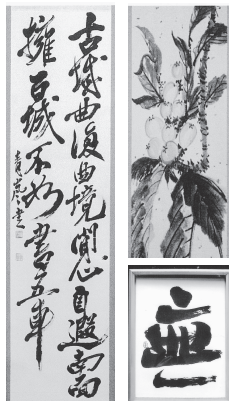 古城曲復曲境閒心自遐南面
擁百城不如書五車
無